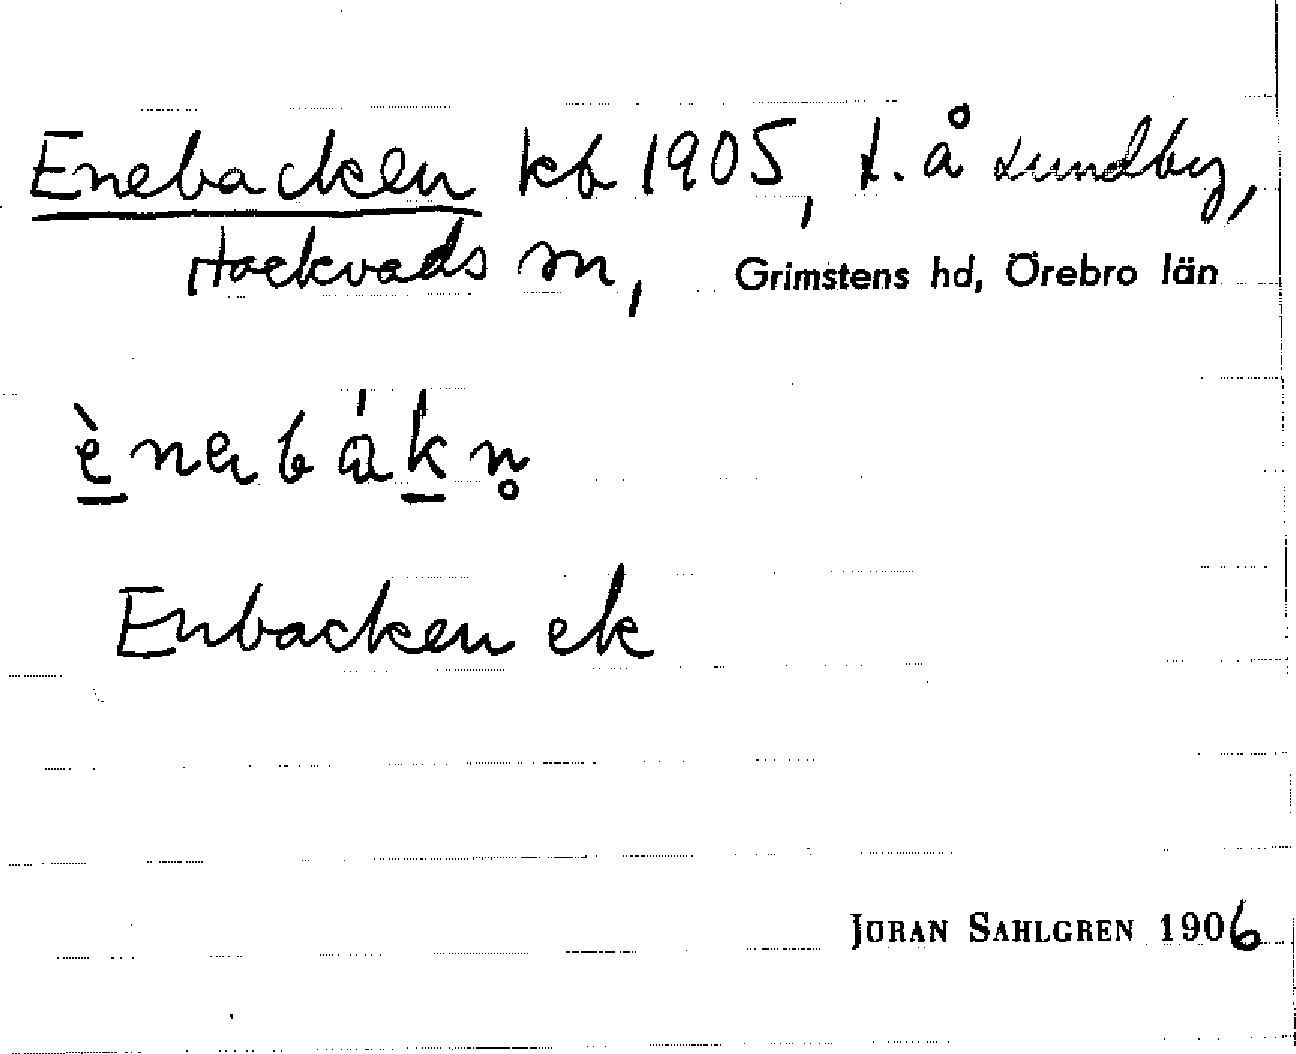 Enebacken kb 1905, t. å Lundby,
Hackvads sn, Grimstens hd, Örebro län
ènabákn̥
Enbacken ek
JÖRAN SAHLGREN 1906